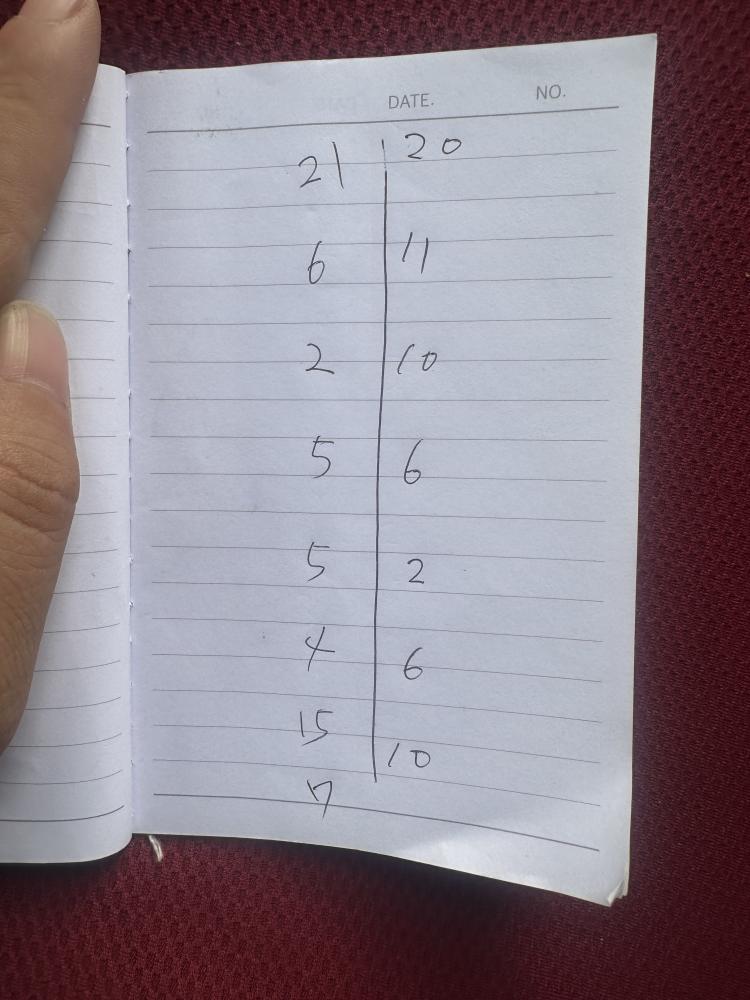 DATE. NO.
21 | 20
6 | 11
2 | 10
5 | 6
5 | 2
4 | 6
15 | 10
7